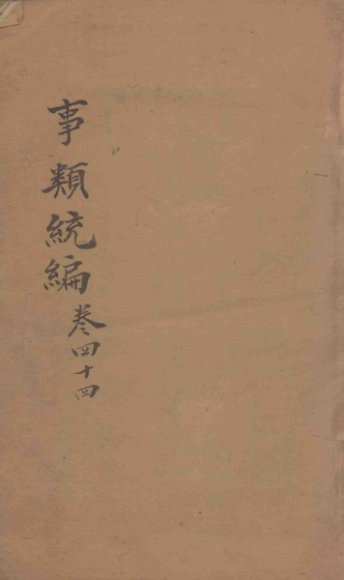 事類統編卷四十四